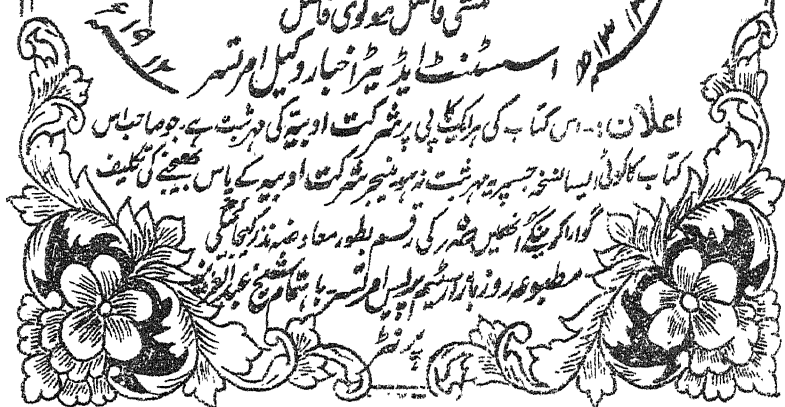 منشی فاضل مولوی فاضل
اسسٹنٹ ایڈیٹر اخبار وکیل امرتسر
اعلان:۔ اس کتاب کی ہر ایک کاپی پر شرکت ادبیہ کی مہر ثبت ہے، جو صاحب اس
کتاب کا کوئی ایسا نسخہ جسپر یہ مہر ثبت نہ ہو منیجر شرکت ادبیہ کے پاس بھیجنے کی تکلیف
گوارا کرینگے انھیں کی رقم بطور معاوضہ نذر کیجائیگی
مطبوعہ روز بازار سٹیم پریس امرتسر باہتمام شیخ عبدالعزیز
پرنٹر